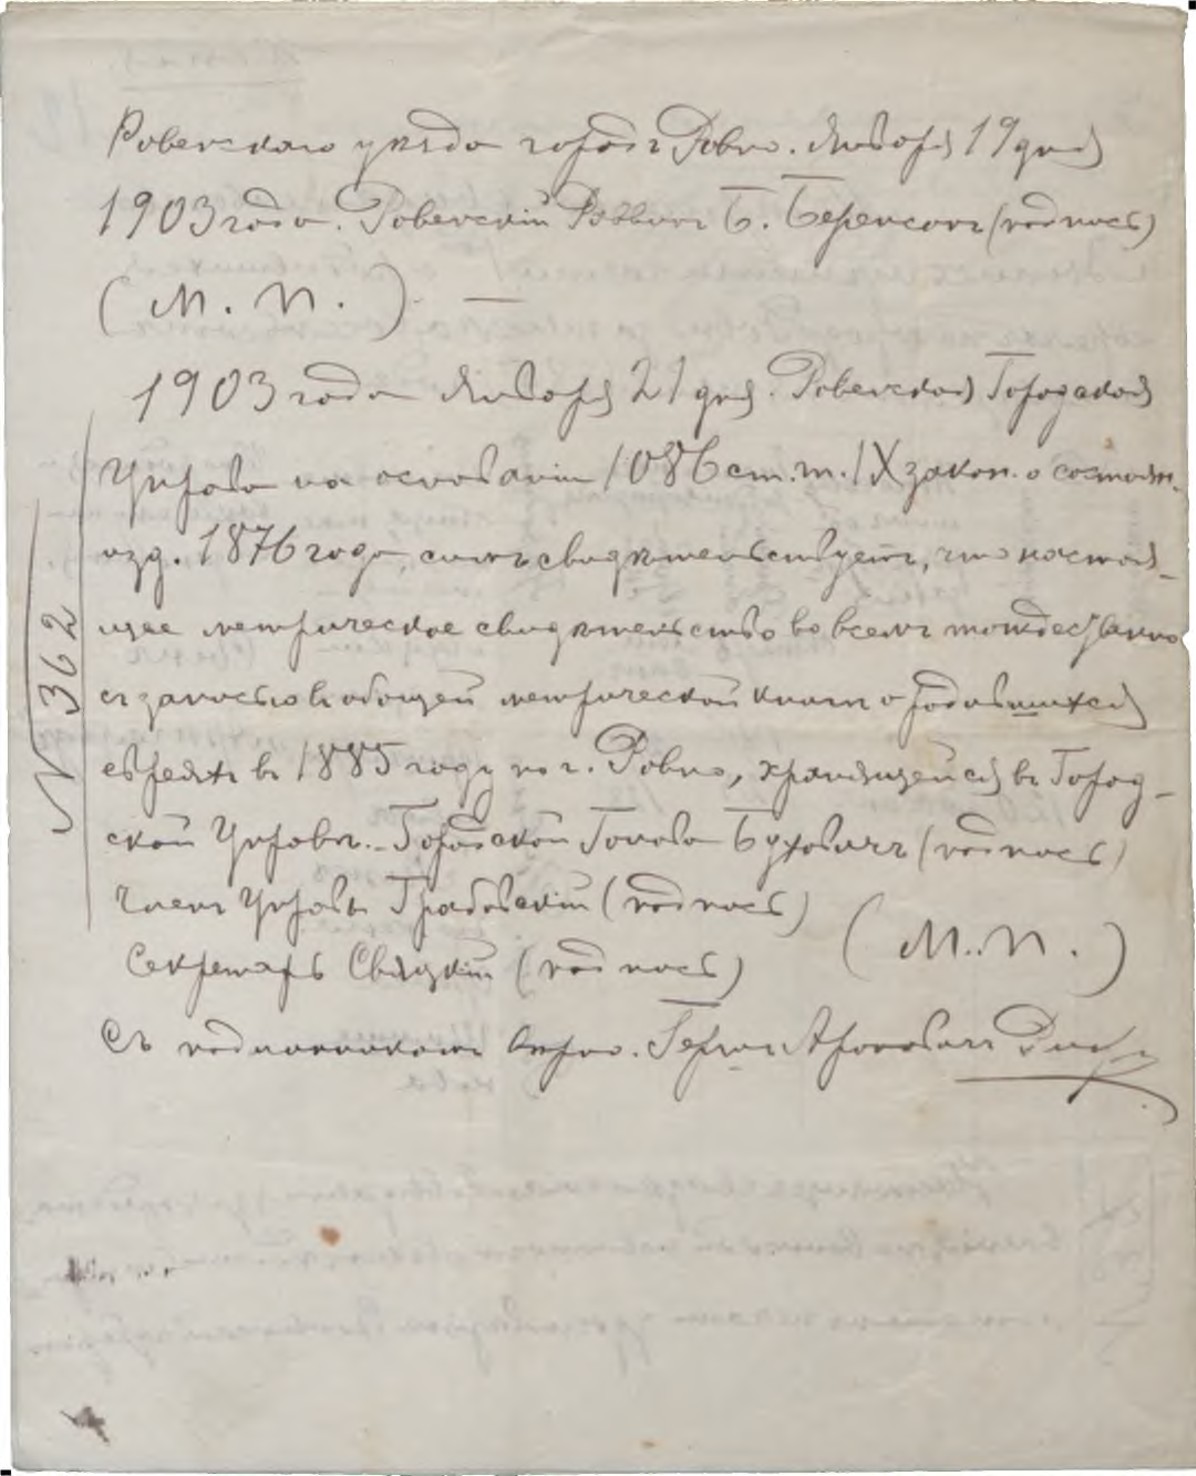 Ровенскаго уѣзда городъ Ровно. Января 19 дня
1903 года. Ровенскій Раввинъ Б. Беренсонъ (подпись)
(М. П.) —
1903 года Января 21 дня. Ровенская Городская
Управа на основаніи 1086 ст. т. IX закон. о состоян.
изд. 1876 года, симъ свидѣтельствуетъ, что настоя-
щее метрическое свидѣтельство во всемъ тождественно
съ записью въ общей метрической книгѣ о родившихся
евреяхъ въ 1885 году по г. Ровно, хранящейся въ Город-
ской Управѣ. Городской Голова Буховичъ (подпись)
Членъ Управы Грабовскій (подпись) (М. П.)
Секретарь Свядзкій (подпись)
Съ подлинникомъ вѣрно. Гершъ Ароновичъ
N 362